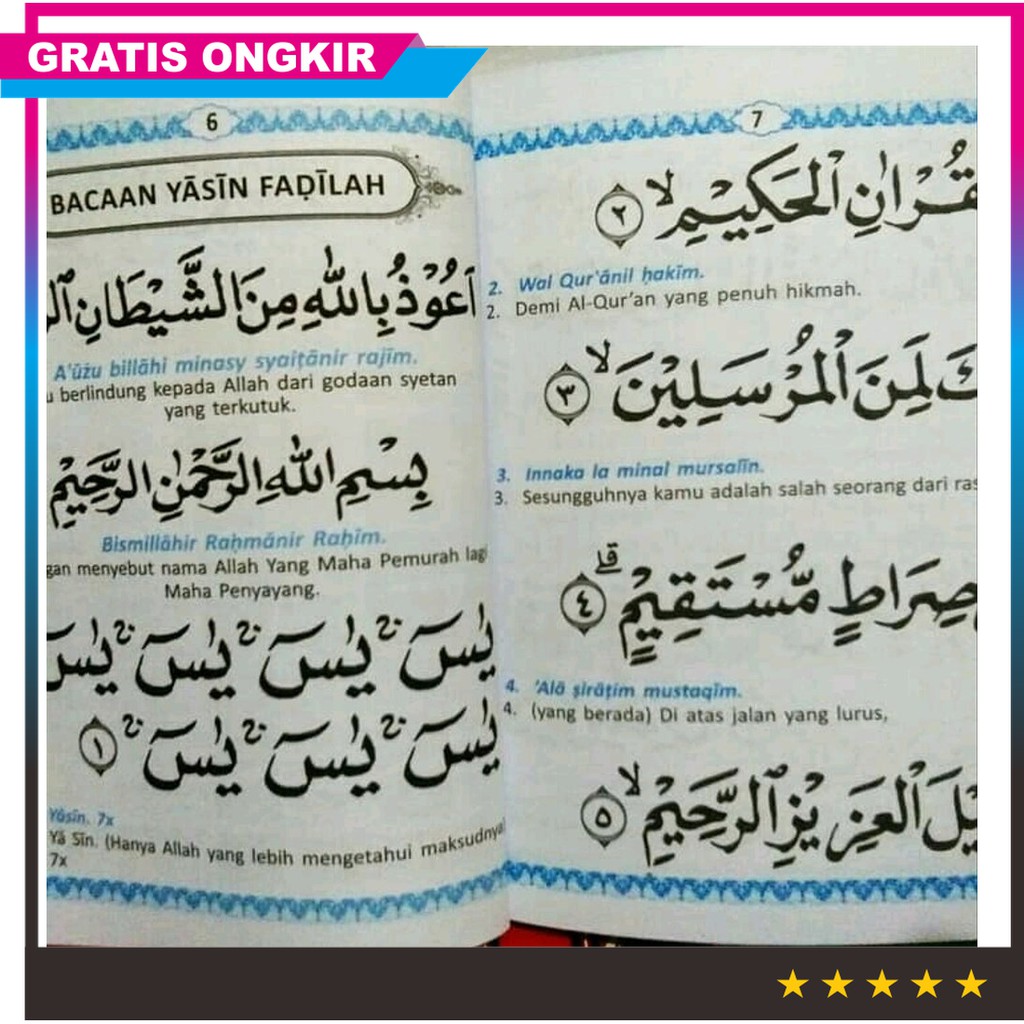 GRATIS ONGKIR
6
BACAAN YĀSĪN FAḌĪLAH
اَعُوْذُ بِاللّٰهِ مِنَ الشَّيْطَانِ
A'ūżu billāhi minasy syaiṭānir rajīm.
berlindung kepada Allah dari godaan syetan
yang terkutuk.
بِسْمِ اللّٰهِ الرَّحْمٰنِ الرَّحِيْمِ
Bismillāhir Raḥmānir Raḥīm.
menyebut nama Allah Yang Maha Pemurah lagi
Maha Penyayang.
يٰسۤ ۲ يٰسۤ ۲ يٰسۤ ۲ يٰسۤ
يٰسۤ ۲ يٰسۤ ۲ يٰسۤ ۲ ١
Yāsīn. 7x
Yā Sīn. (Hanya Allah yang lebih mengetahui maksudnya)
7x
7
قُرْاٰنِ الْحَكِيْمِ ۙ ٢
2. Wal Qur'ānil ḥakīm.
2. Demi Al-Qur'an yang penuh hikmah.
كَ لَمِنَ الْمُرْسَلِيْنَ ۙ ٣
3. Innaka la minal mursalīn.
3. Sesungguhnya kamu adalah salah seorang dari
صِرَاطٍ مُّسْتَقِيْمٍ ۗ ٤
4. 'Alā ṣirāṭim mustaqīm.
4. (yang berada) Di atas jalan yang lurus,
يْلَ الْعَزِيْزِ الرَّحِيْمِ ۙ ٥